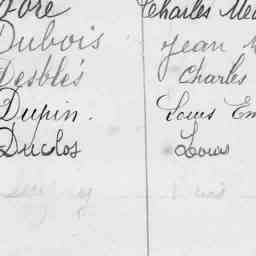 Doré Charles
Dubois Jean
Desblés Charles
Dupin. Louis Em
Duclos Louis